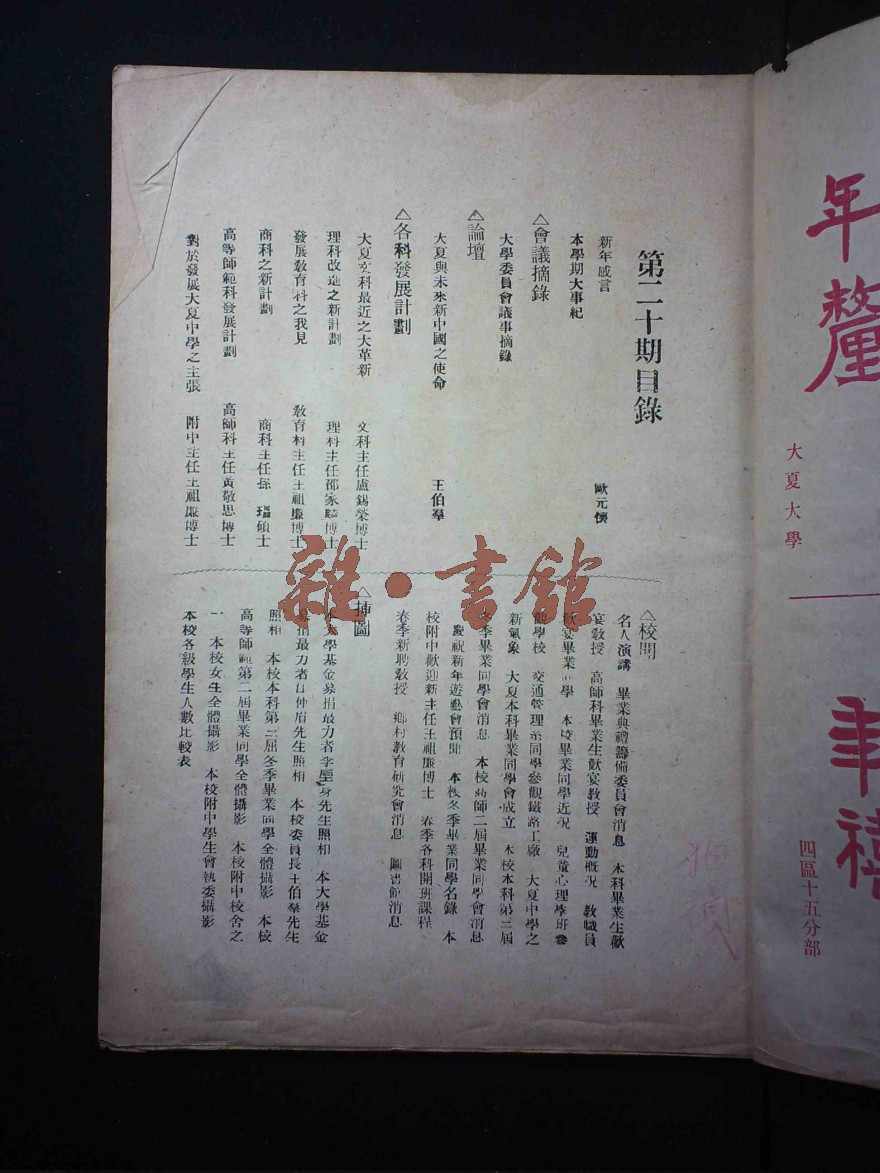 年釐
大夏大學
年禧
四區十五分部
第二十期目錄
新年感言 歐元懷
本學期大事紀
△會議摘錄
大學委員會議事摘錄
△論壇
大夏與未來新中國之使命 王伯羣
△各科發展計劃
大夏文科最近之大革新 文科主任盧錫榮博士
理科改進之新計劃 理科主任邵家麟博士
發展教育科之我見 教育科主任王祖廉博士
商科之新計劃 商科主任孫 瑞碩士
高等師範科發展計劃 高師科主任黃敬思博士
對於發展大夏中學之主張 附中主任王祖廉博士
△校聞
名人演講 畢業典禮籌備委員會消息 本科畢業生歡
宴敎授 高師科畢業生歡宴敎授 運動概况 敎職員
歡宴畢業同學 本校畢業同學近况 兒童心理學班參
觀學校 交通管理系同學參觀鐵路工廠 大夏中學之
新氣象 大夏本科畢業同學會成立 本校本科第三屆
冬季畢業同學會消息 本校高師二屆畢業同學會消息
慶祝新年遊藝會預聞 本校冬季畢業同學名錄 本
校附中歡迎新主任王祖廉博士 春季各科開班課程
春季新聘敎授 鄉村敎育研究會消息 圖書館消息
△插圖
本大學基金募捐最力者李 身先生照相 本大學基金
募捐最力者 仲眉先生照相 本校委員長王伯羣先生
照相 本校本科第三屆冬季畢業同學全體攝影 本校
高等師範第二屆畢業同學全體攝影 本校附中校舍之
一 本校女生全體攝影 本校附中學生會執委攝影
本校各級學生人數比較表
雜·書館